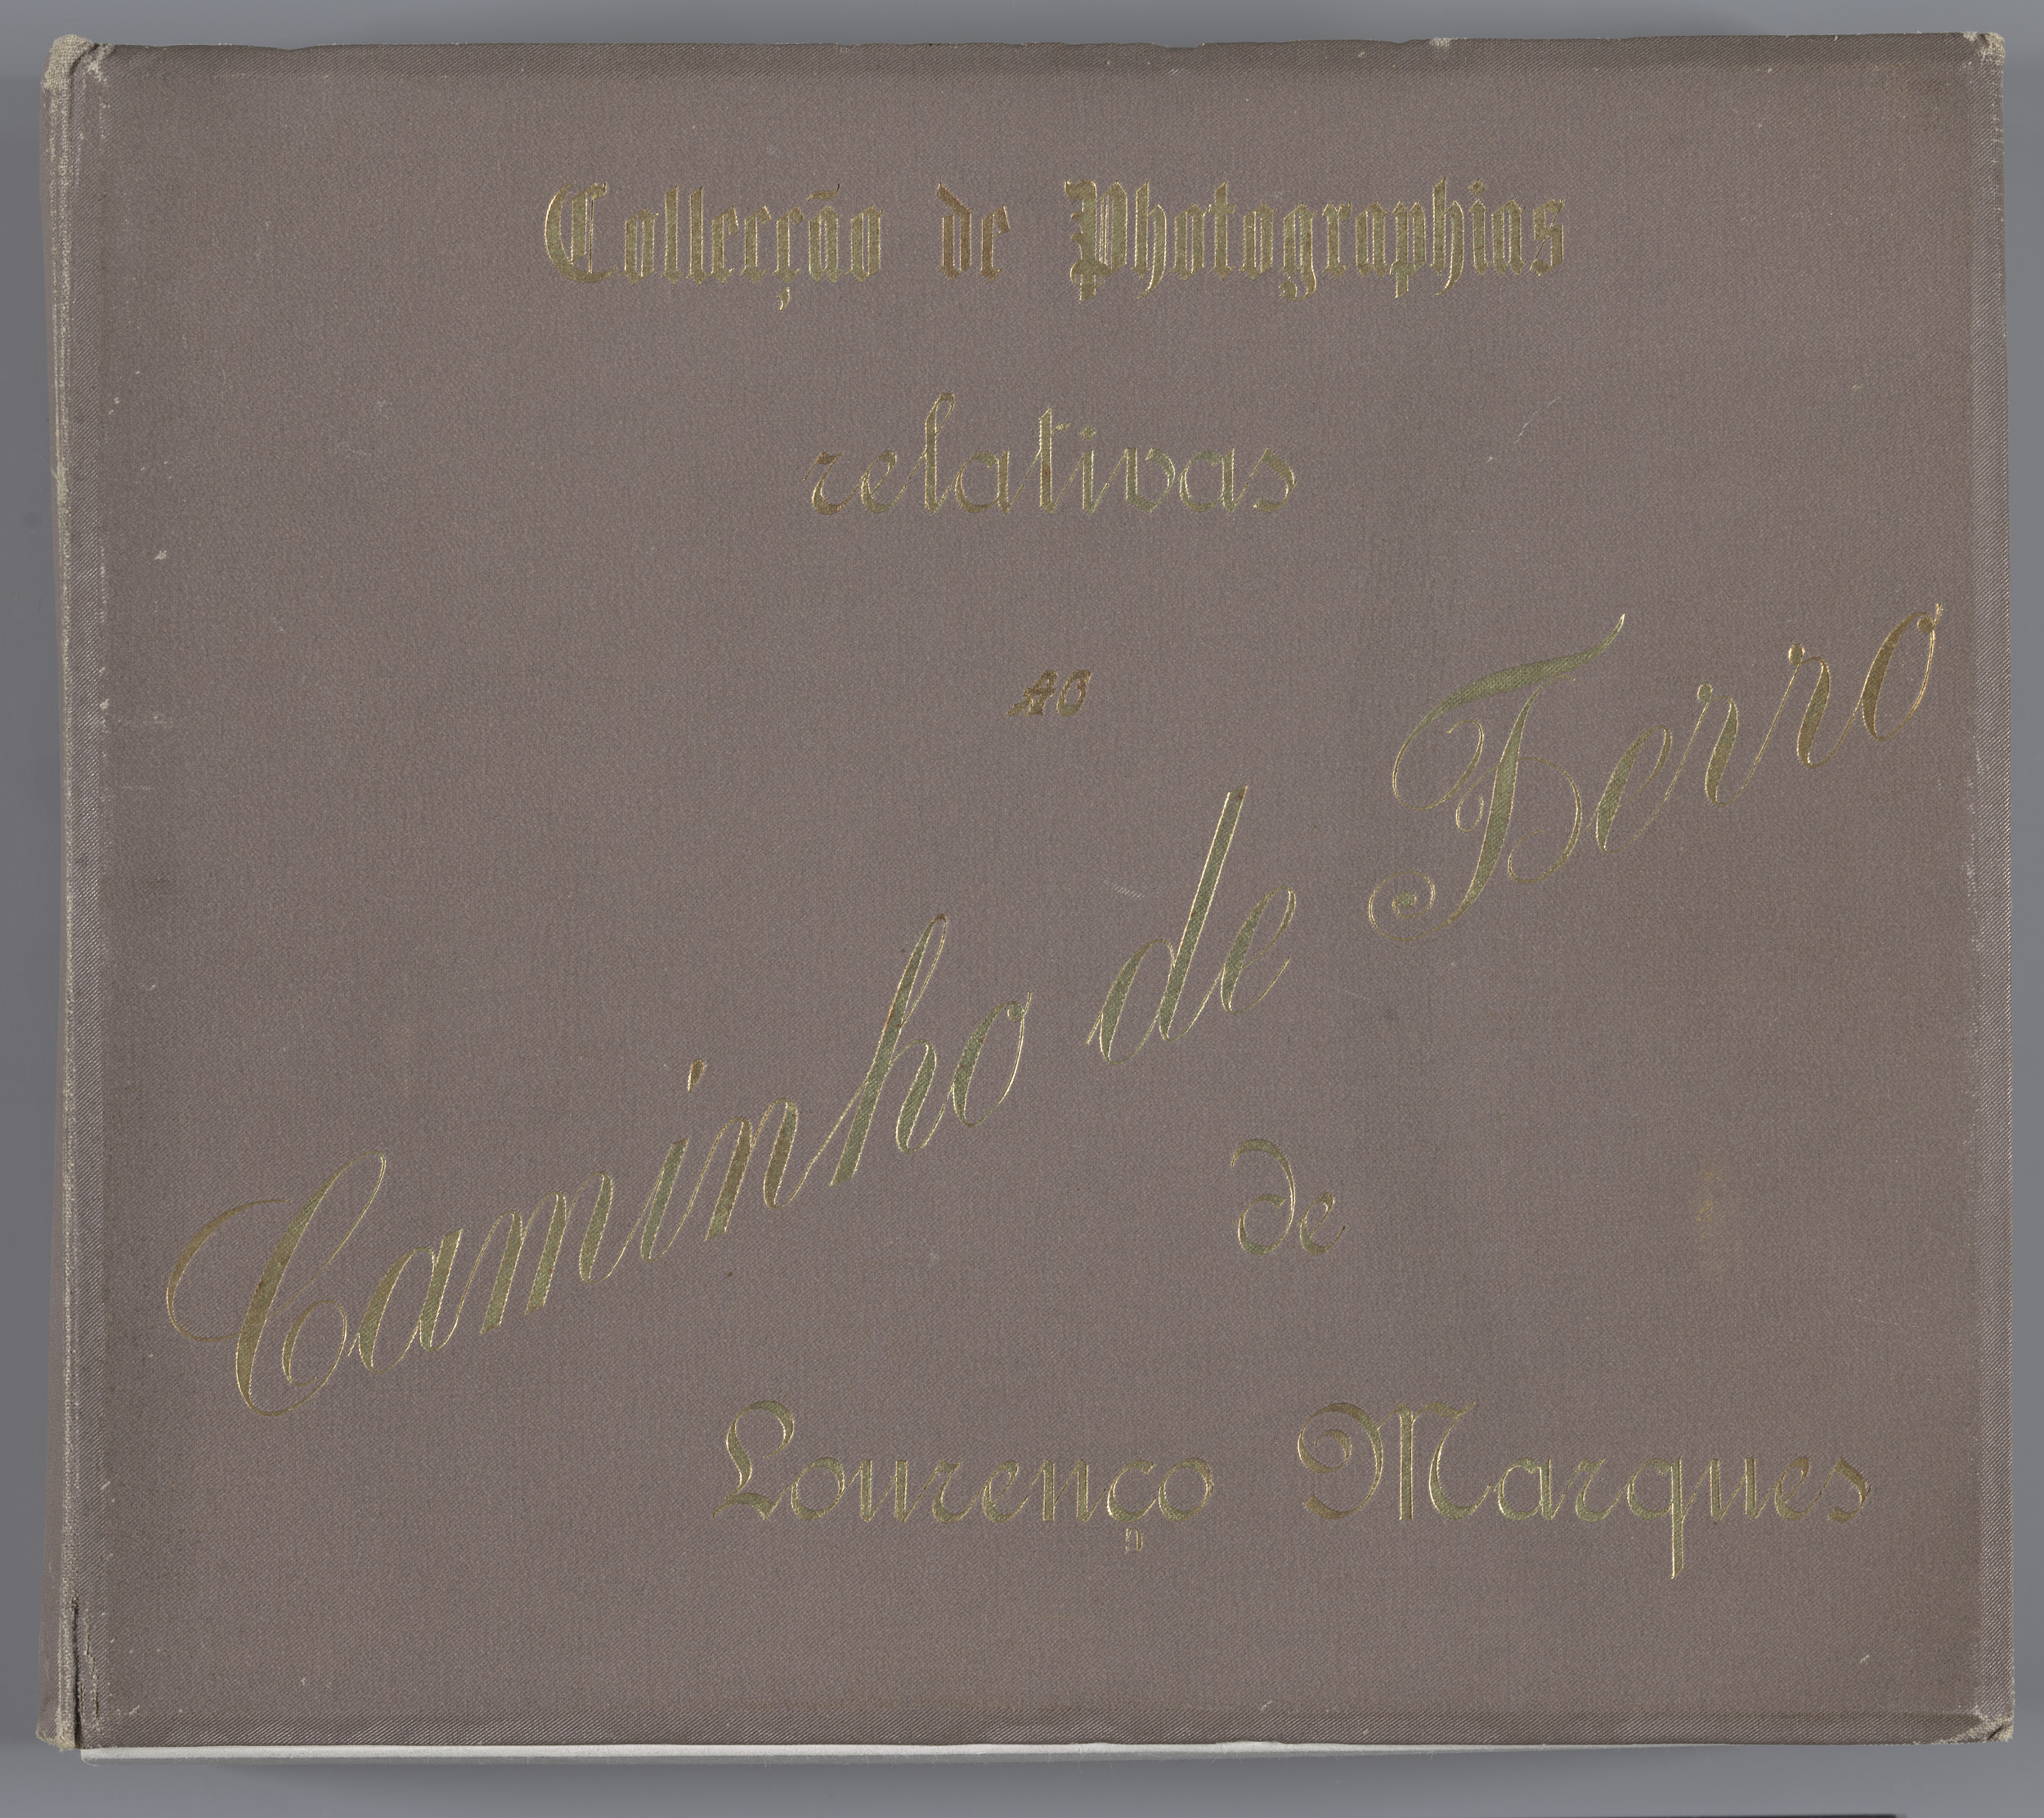 Collecção de Photographias
relativas
AO
Caminho de Ferro
de
Lourenço Marques